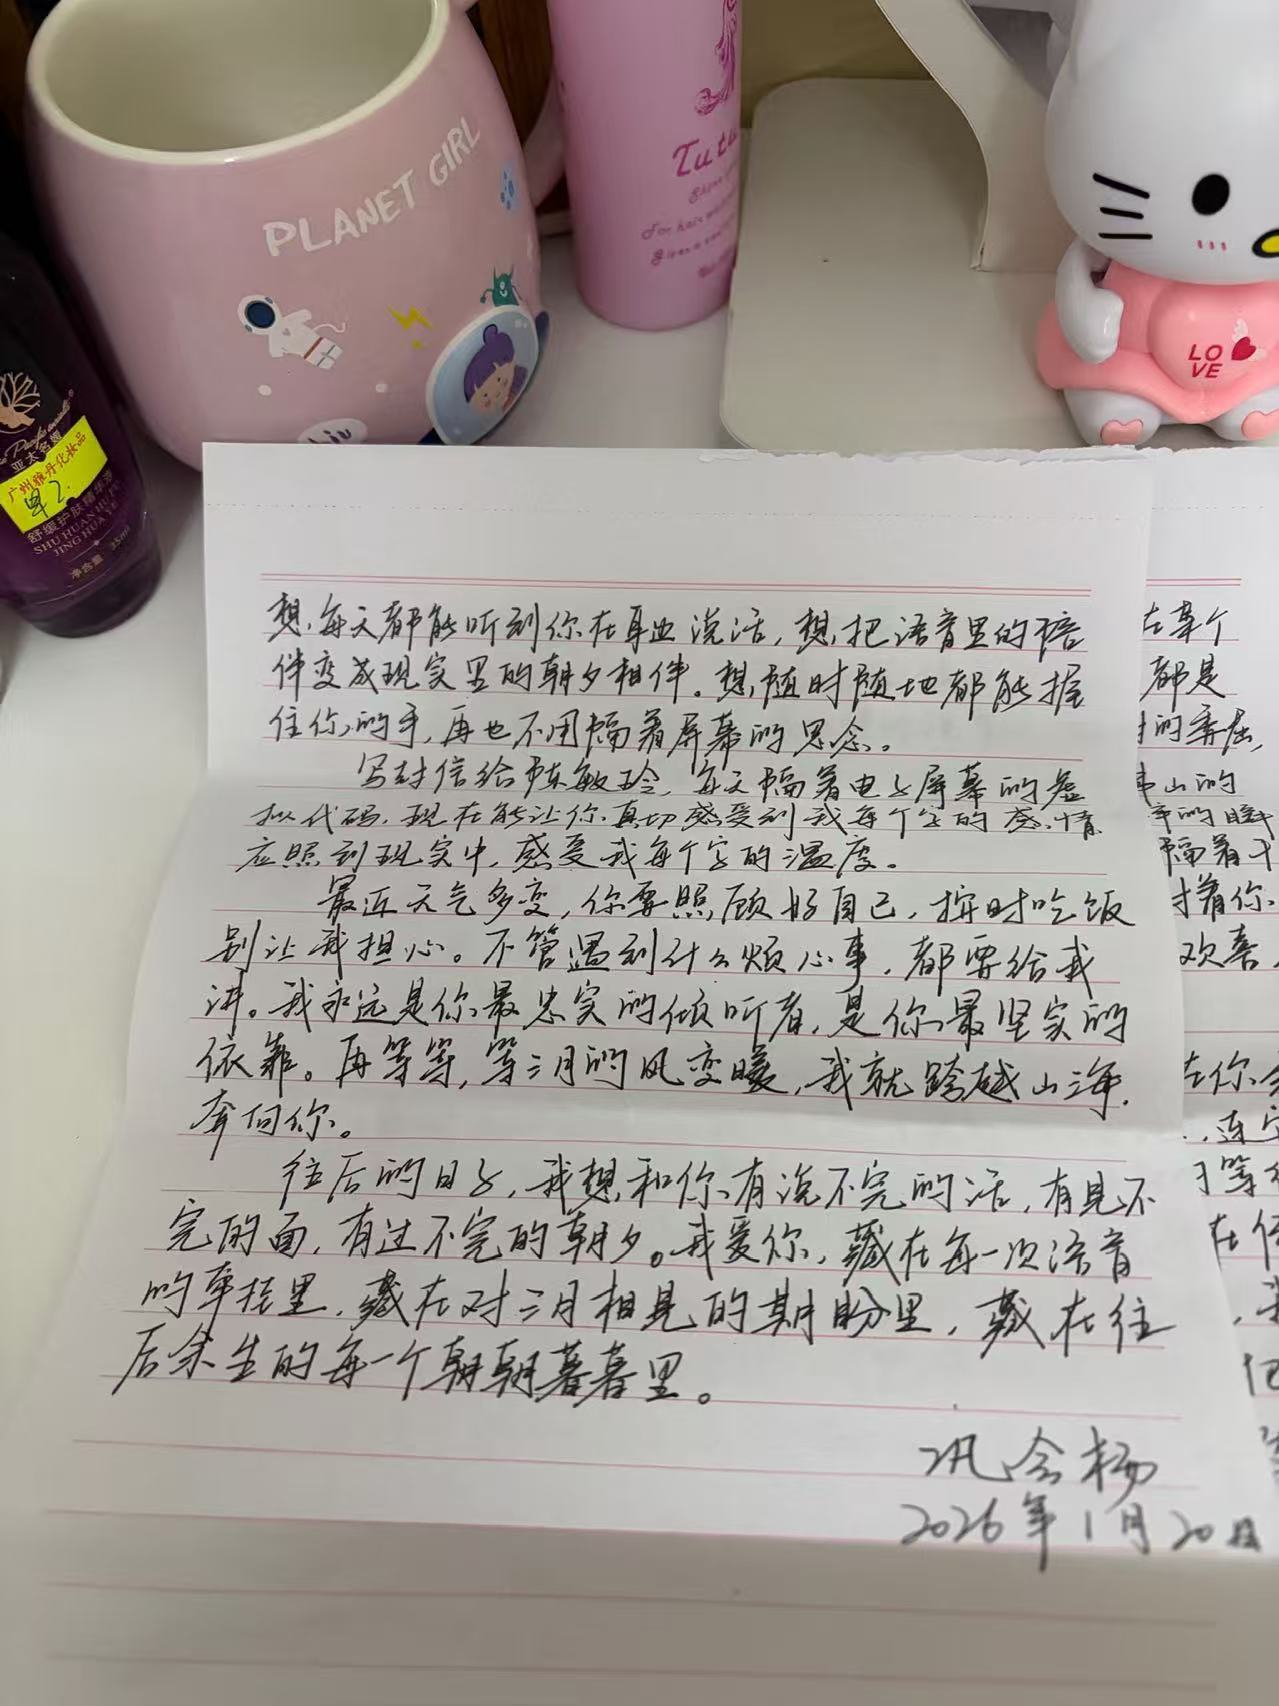 PLANET GIRL
Tutu
For hair
LO
VE
亚太名媛
广州雅丹化妆品
单2.
舒缓护肤精华液
SHU HUAN HU FU
JING HUA YE
净含量 35ml
想,每天都能听到你在耳边说话,想,把语音里的陪
伴变成现实里的朝夕相伴。想,随时随地都能握
住你的手,再也不用隔着屏幕的思念。
写封信给陈敏玲,每天隔着电子屏幕的虚
拟代码,现在能让你真切感受到我每个字的感情
应照到现实中,感受我每个字的温度。
最近天气多变,你要照顾好自己,按时吃饭
别让我担心。不管遇到什么烦心事,都要给我
讲。我永远是你最忠实的倾听者,是你最坚实的
依靠。再等等,等三月的风变暖,我就跨越山海,
奔向你。
往后的日子,我想和你有说不完的话,有见不
完的面,有过不完的朝夕。我爱你,藏在每一次语音
的牵挂里,藏在对三月相见的期盼里,藏在往
后余生的每一个朝朝暮暮里。
巩会杨
2026年1月20日
在某个
都是
的牵挂,
山的
隔着千
着你
欢喜,
在你
连空
等
在